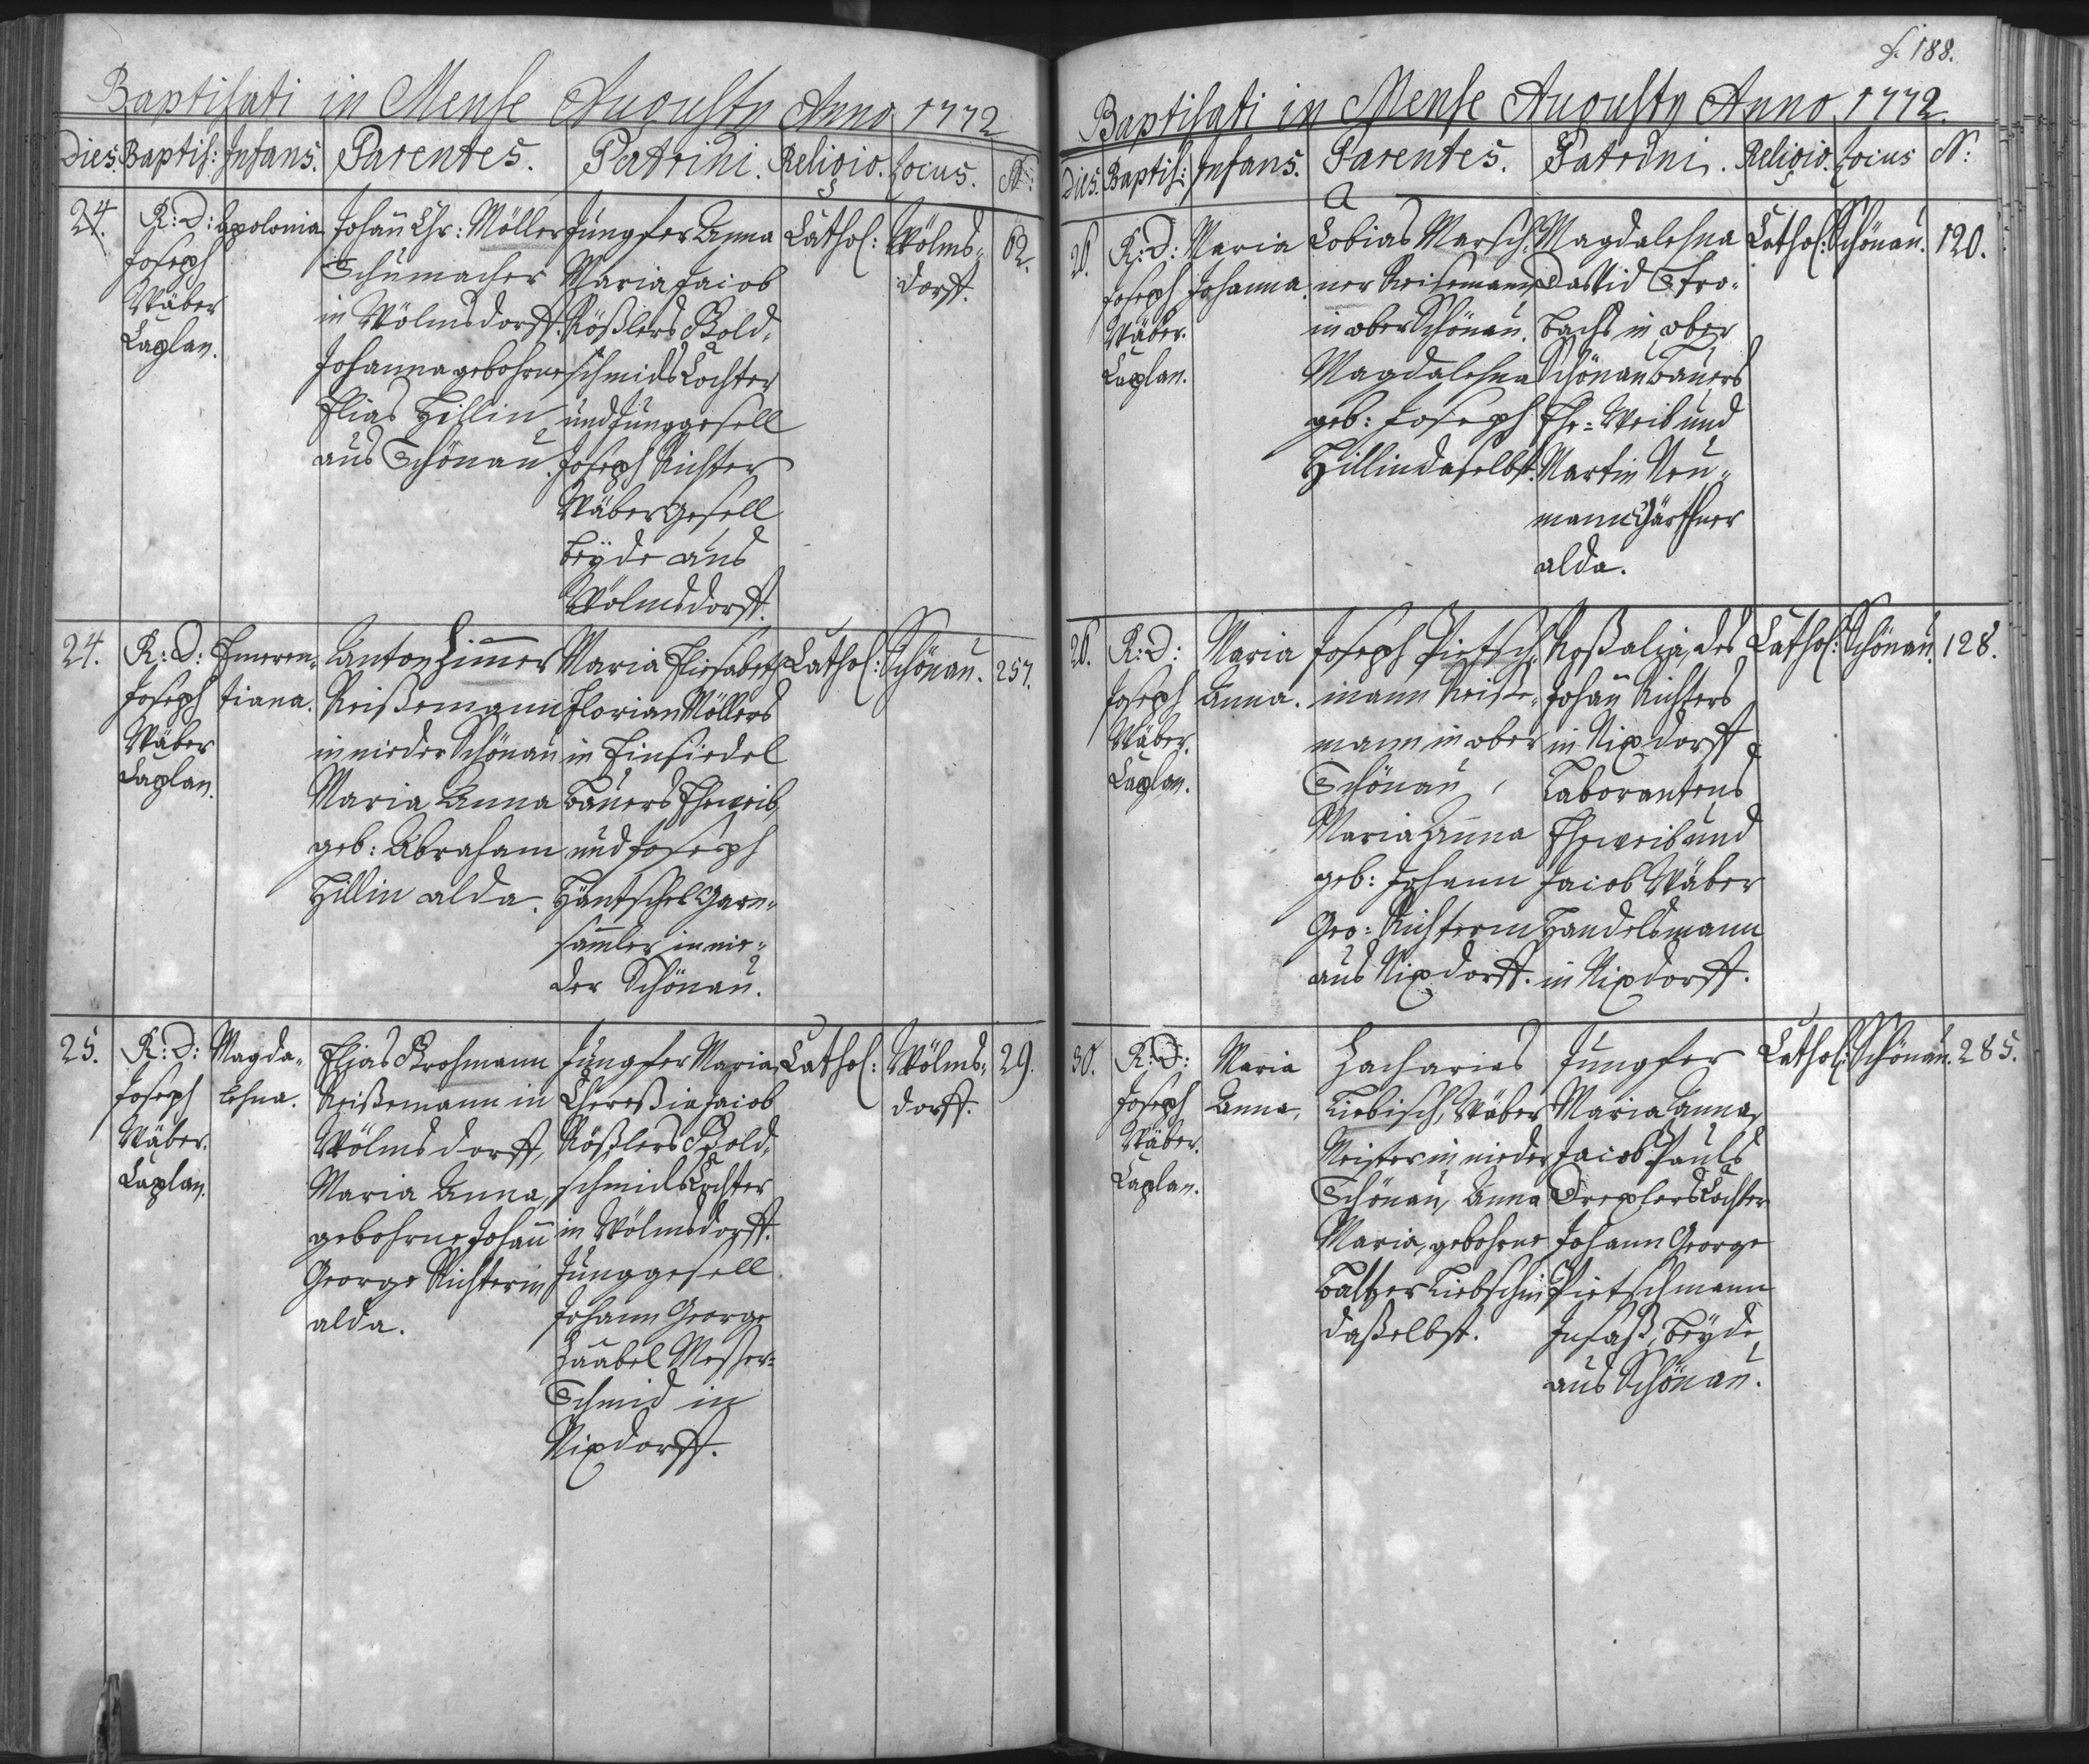 Baptisati in Mense Augusty Anno 1772
Dies. Baptis: Infans. Parentes. Patrini. Religio. Locus. N:
24.
R: D:
Joseph
Wäber
Caplan.
Apolonia
Johan̄ Chr: Möller
Schumacher
in Wölmsdorff.
Johanna gebohrne
Elias Hillin
aus Schönau.
Jungfer Anna
Maria Jacob
Rößlers Gold-
schmids Tochter
und Junggesell
Joseph Richter
Wäber Gesell
beyde aus
Wölmsdorff.
Cathol:
Wölms-
dorff.
62.
24.
R: D:
Joseph
Wäber
Caplan.
Emeren-
tiana.
Anton Zimmer
Reißemann
in nieder Schönau
Maria Anna
geb: Abraham
Hillin alda.
Maria Elisabeth
Florian Möllers
in Einsiedel
bauers Eheweib,
und Joseph
Häntschel Garn-
samler in nie-
der Schönau.
Cathol:
Schönau.
257.
25.
R: D:
Joseph
Wäber.
Caplan.
Magda-
lehna.
Elias Grohmann
Reißemann in
Wölmsdorff,
Maria Anna,
gebohrne Johan̄
George Richterin
alda.
Jungfer Maria
Thereßia Jacob
Rößlers Gold-
schmids Tochter
in Wölmsdorff.
Junggesell
Johann George
Zaabel Messer-
Schmid in
Nixdorff.
Cathol:
Wölms-
dorff.
29.
f. 188.
Baptisati in Mense Augusty Anno 1772.
Dies. Baptis: Infans. Parentes. Patrini. Religio. Locus N:
26.
R: D:
Joseph
Wäber.
Caplan.
Maria
Johanna.
Tobias Marsch-
ner Reisemann
in ober Schönau.
Magdalehna
geb: Joseph
Hillin daselbst.
Magdalehna
David Stro-
bachs in ober
Schönau bauers
Ehe-Weib und
Martin Neu-
mann Gärthner
alda.
Cathol:
Schönau.
120.
26.
R: D:
Joseph
Wäber.
Caplan.
Maria
Anna.
Joseph Pietsch-
mann Reise-
mann in ober
Schönau,
Maria Anna
geb: Johann
Geo: Richterin
aus Nixdorff.
Roßalia, des
Johan̄ Richters
in Nixdorff
Laborantens
Eheweib und
Jacob Wäber
Handelsmann
in Nixdorff.
Cathol:
Schönau.
128.
30.
R: D:
Joseph
Wäber.
Caplan.
Maria
Anna,
Zacharias
Liebisch, Wäber
Meister in nieder
Schönau, Anna
Maria, gebohrne
Baltzer Liebschin
daßelbst.
Jungfer
Maria Anna,
Jacob Pauls
Drexlers Tochter
Johann George
Pietschmann
Insaß, beyde
aus Schönau.
Cathol:
Schönau.
285.